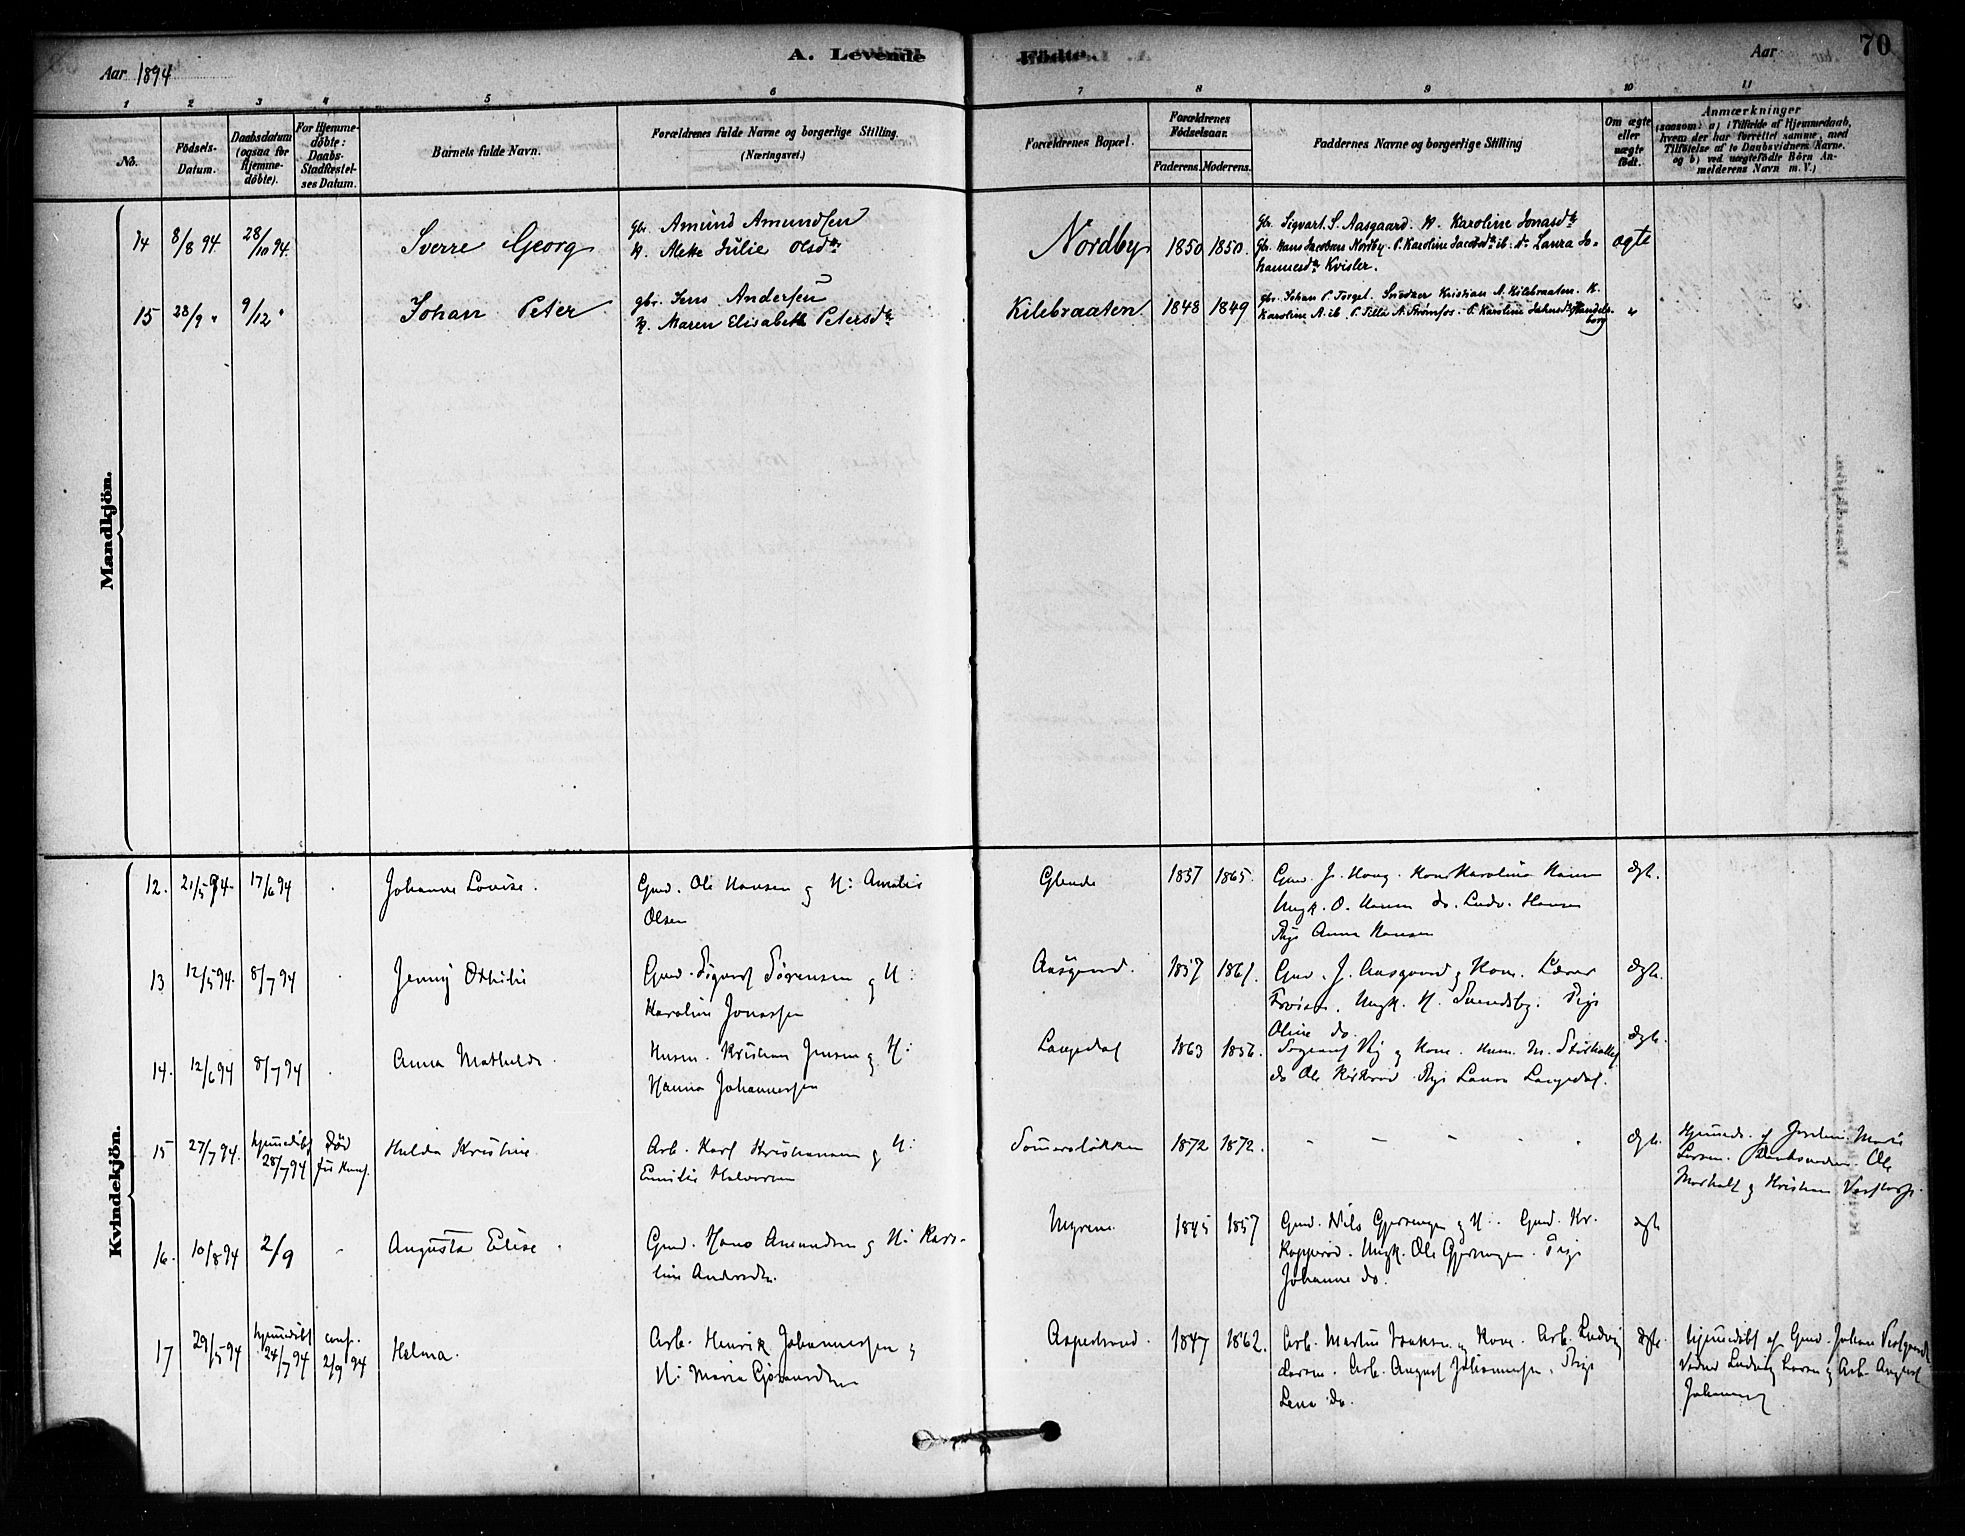 Aar 1894
A. Levende
Fødte.
Aar
70
1 2 3 4 5 6 7 8 9 10 11
No.
Födsels-
Datum.
Daabsdatum
(ogsaa for
Hjemme-
döbte).
For Hjemme-
döbte:
Daabs-
Stadfæstel-
ses Datum.
Barnets fulde Navn.
Forældrenes fulde Navne og borgerlige Stilling.
(Næringsvei.)
Forældrenes Bopæl.
Forældrenes
Födselsaar.
Faderens. Moderens.
Faddernes Navne og borgerlige Stilling
Om ægte
eller
uægte
födt.
Anmærkninger
(saasom: a) i Tilfælde af Hjemmedaab,
hvem der har forrettet samme, med
Tilföielse af to Daabsvidners Navne,
og b) ved uægtefödte Börn An-
melderens Navn m. V.)
Mandkjön.
14 8/8 94 28/10 94. Sverre Georg
gbr. Amund Amundsen
K. Aleke Julie Olsdtr
Nordby 1850 1850.
gbr. Sigvart S. Aasgaard. K. Karoline Jonasdtr
gbr. Hans Jacobsen Nordby. P. Karoline Jacobsdtr ib. do Laura Jo-
hannesdtr Kvisler.
ægte
15 28/9 " 9/12 " Johan Peter
gbr. Jens Andersen
K. Maren Elisabeth Petersdtr
Kilebraaten 1848 1849
gbr. Johan P. Torget. Snedker Kristian A. Kilebraaten. K.
Karoline A. ib. P. Tilla A. Strømfos. P. Karoline Jahnsdtr Handels-
borg
"
Kvindekjön.
12. 21/5 94. 17/6 94 Johanne Lovise.
Gmd. Ole Hansen og H: Amalie
Olsen
Glende 1857 1865.
Gmd. J. Haug. Kone Karoline Hansen
Ungk. O. Hansen do. Ludv. Hansen
Pige Anna Hansen
ægte.
13 12/5 94. 8/7 94 Jenny Othilie
Gmd. Sigvart Sørensen og H:
Karoline Jonassen
Aasgaard. 1857 1861.
Gmd. J. Aasgaard og Kone. Lærer
Ungk. H. Pige
Oline do.
ægte.
14. 12/6 94 8/7 94 Anna Mathilde
Husm. Kristian Jensen og H:
Hanna Johannessen
Langedal 1863 1856.
og Kone. Husm. M.
do Ole Pige Laura Langedal.
ægte.
15 27/7 94. hjemmedöbt
28/7 94 Død
før Konf. Hulda Kristine
Arb. Karl Kristiansen og H:
Emilie Halvorsen
Sommersløkken 1872 1872. - - - - -
ægte.
Hjemmed. af Jordm. Marie
Larsen. Daabsvidner Ole
og Kristian
16. 10/8 94 2/9 - Augusta Elise.
Gmd. Hans Amundsen og H: Karo-
line Andersdtr.
Myrene 1845 1857
Gmd. Nils og H. Gmd. Kr.
Kopperød. Ungk. Ole Pige
Johanne do.
ægte
17 29/5 94 hjemmedöbt
24/7 94 conf.
2/9 94 Helma.
Arb. Henrik Johannessen og
H: Maria
Aspestrand. 1847 1862.
Arb. Martin Isaksen og Kone. Arb. Ludvig
Larsen. Arb. August Johannessen. Pige
Lena do.
ægte.
hjemmedöbt af Gmd. Johan
Vidner Ludvig Larsen og Arb. August
Johannessen